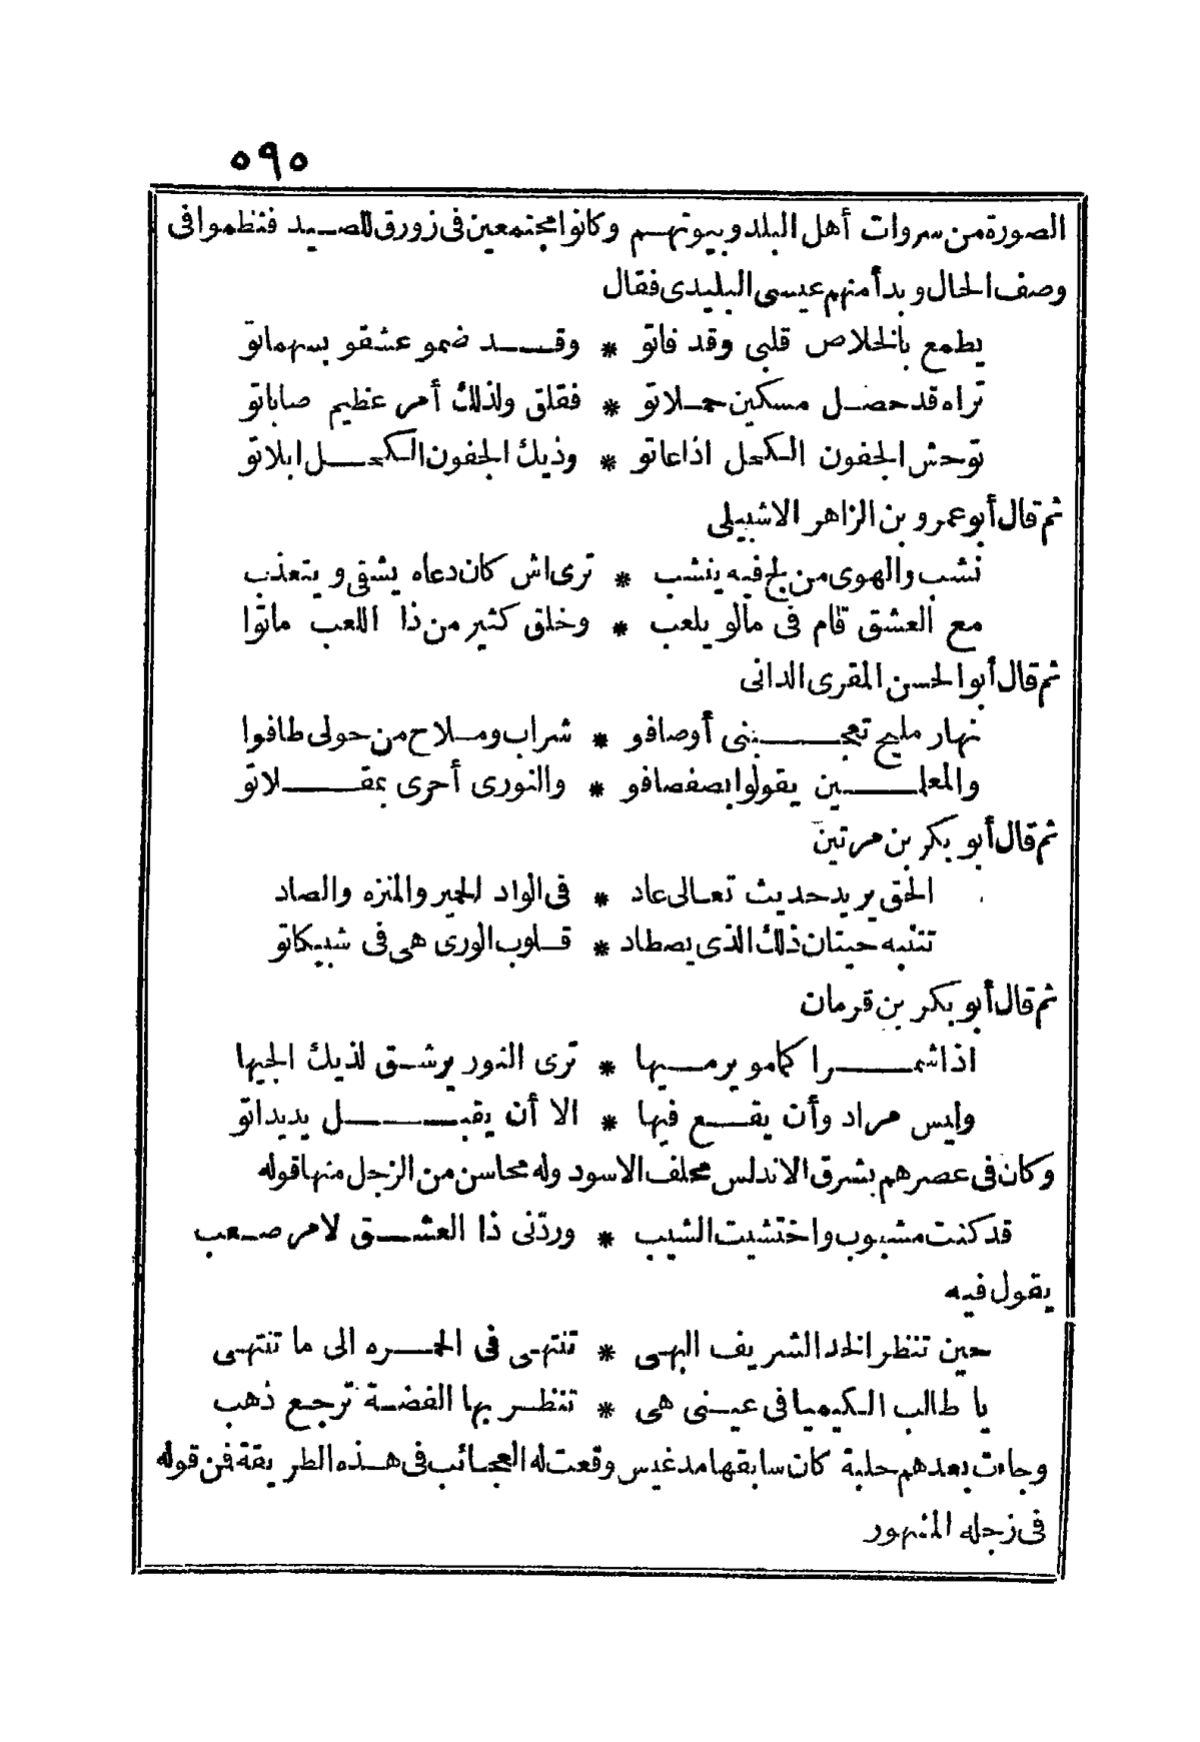 ٥٩٥
الصورة من سروات أهل البلد وبيوتهم وكانوا مجتمعين فى زورق للصيد فنظموا فى
وصف الحال وبدأ منهم عيسى البليدى فقال
يطمع بالخلاص قلبى وقد فاتو * وقد ضمو عشقو بسهماتو
تراه قد حصل مسكين حملاتو * فقلق ولذلك أمر عظيم صاباتو
توحش الجفون الكحل اذا عاتو * وذيك الجفون الكحل ابلاتو
ثم قال أبو عمرو بن الزاهر الاشبيلى
نشب والهوى من لج فيه ينشب * ترى اش كان دعاه يشقى ويتعذب
مع العشق قام فى مالو يلعب * وخلق كثير من ذا اللعب ماتوا
ثم قال أبو الحسن المقرى الدانى
نهار مليح تعجبنى أوصافو * شراب وملاح من حولى طافوا
والمعلمين يقولوا بصفصافو * والنورى أحرى بمقلاتو
ثم قال أبو بكر بن مرتين
الحق يريد حديث تعالى عاد * فى الواد الحمير والمنزه والصاد
تتنبه حيتان ذلك الذى يصطاد * قلوب الورى هى فى شبيكاتو
ثم قال أبو بكر بن قرمان
اذا شمرا كمامو يرميها * ترى النور يرشق لذيك الجيها
وليس مراد وأن يقع فيها * الا أن يقبل يديداتو
وكان فى عصرهم بشرق الاندلس محلف الاسود وله محاسن من الزجل منها قوله
قد كنت مشبوب واختشيت الشيب * وردنى ذا العشق لامر صعب
يقول فيه
حين تنظر الخد الشريف البهى * تنتهى فى الحمره الى ما تنتهى
يا طالب الكيميا فى عينى هى * تنظر بها الفضة ترجع ذهب
وجاءت بعدهم حلبة كان سابقها مدغيس وقعت له العجائب فى هذه الطريقة فمن قوله
فى زجله المشهور